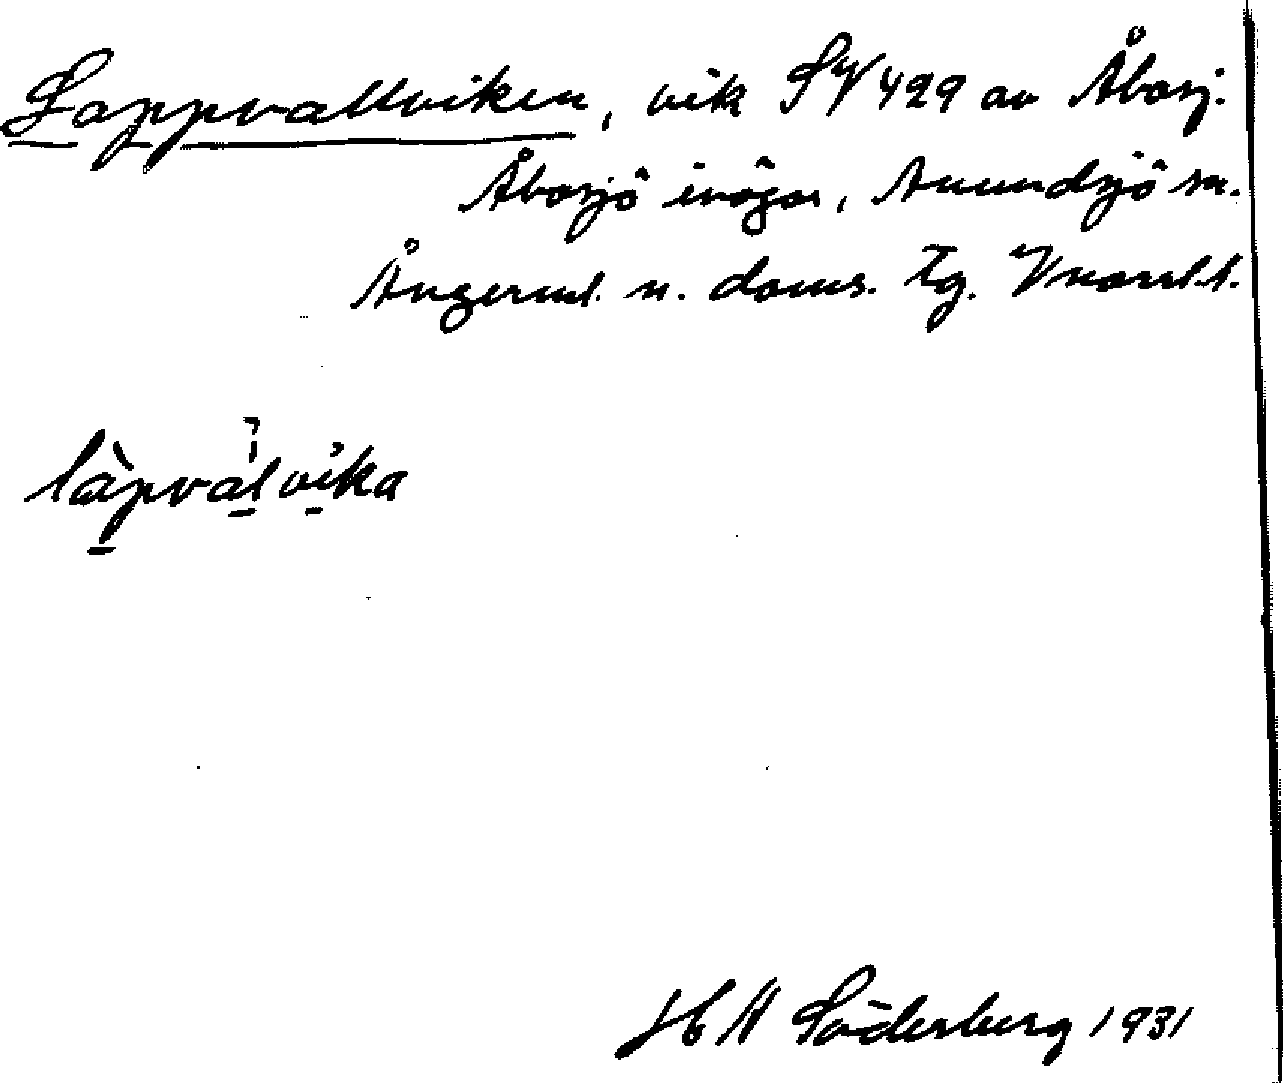 Lappvallviken, vik SV 429 av Åbosj.
Åbosjö inägor, Anundsjö sn.
Ångerml. n. doms. tg. Vnorrl.l.
làpválvika
H A Söderberg 1931